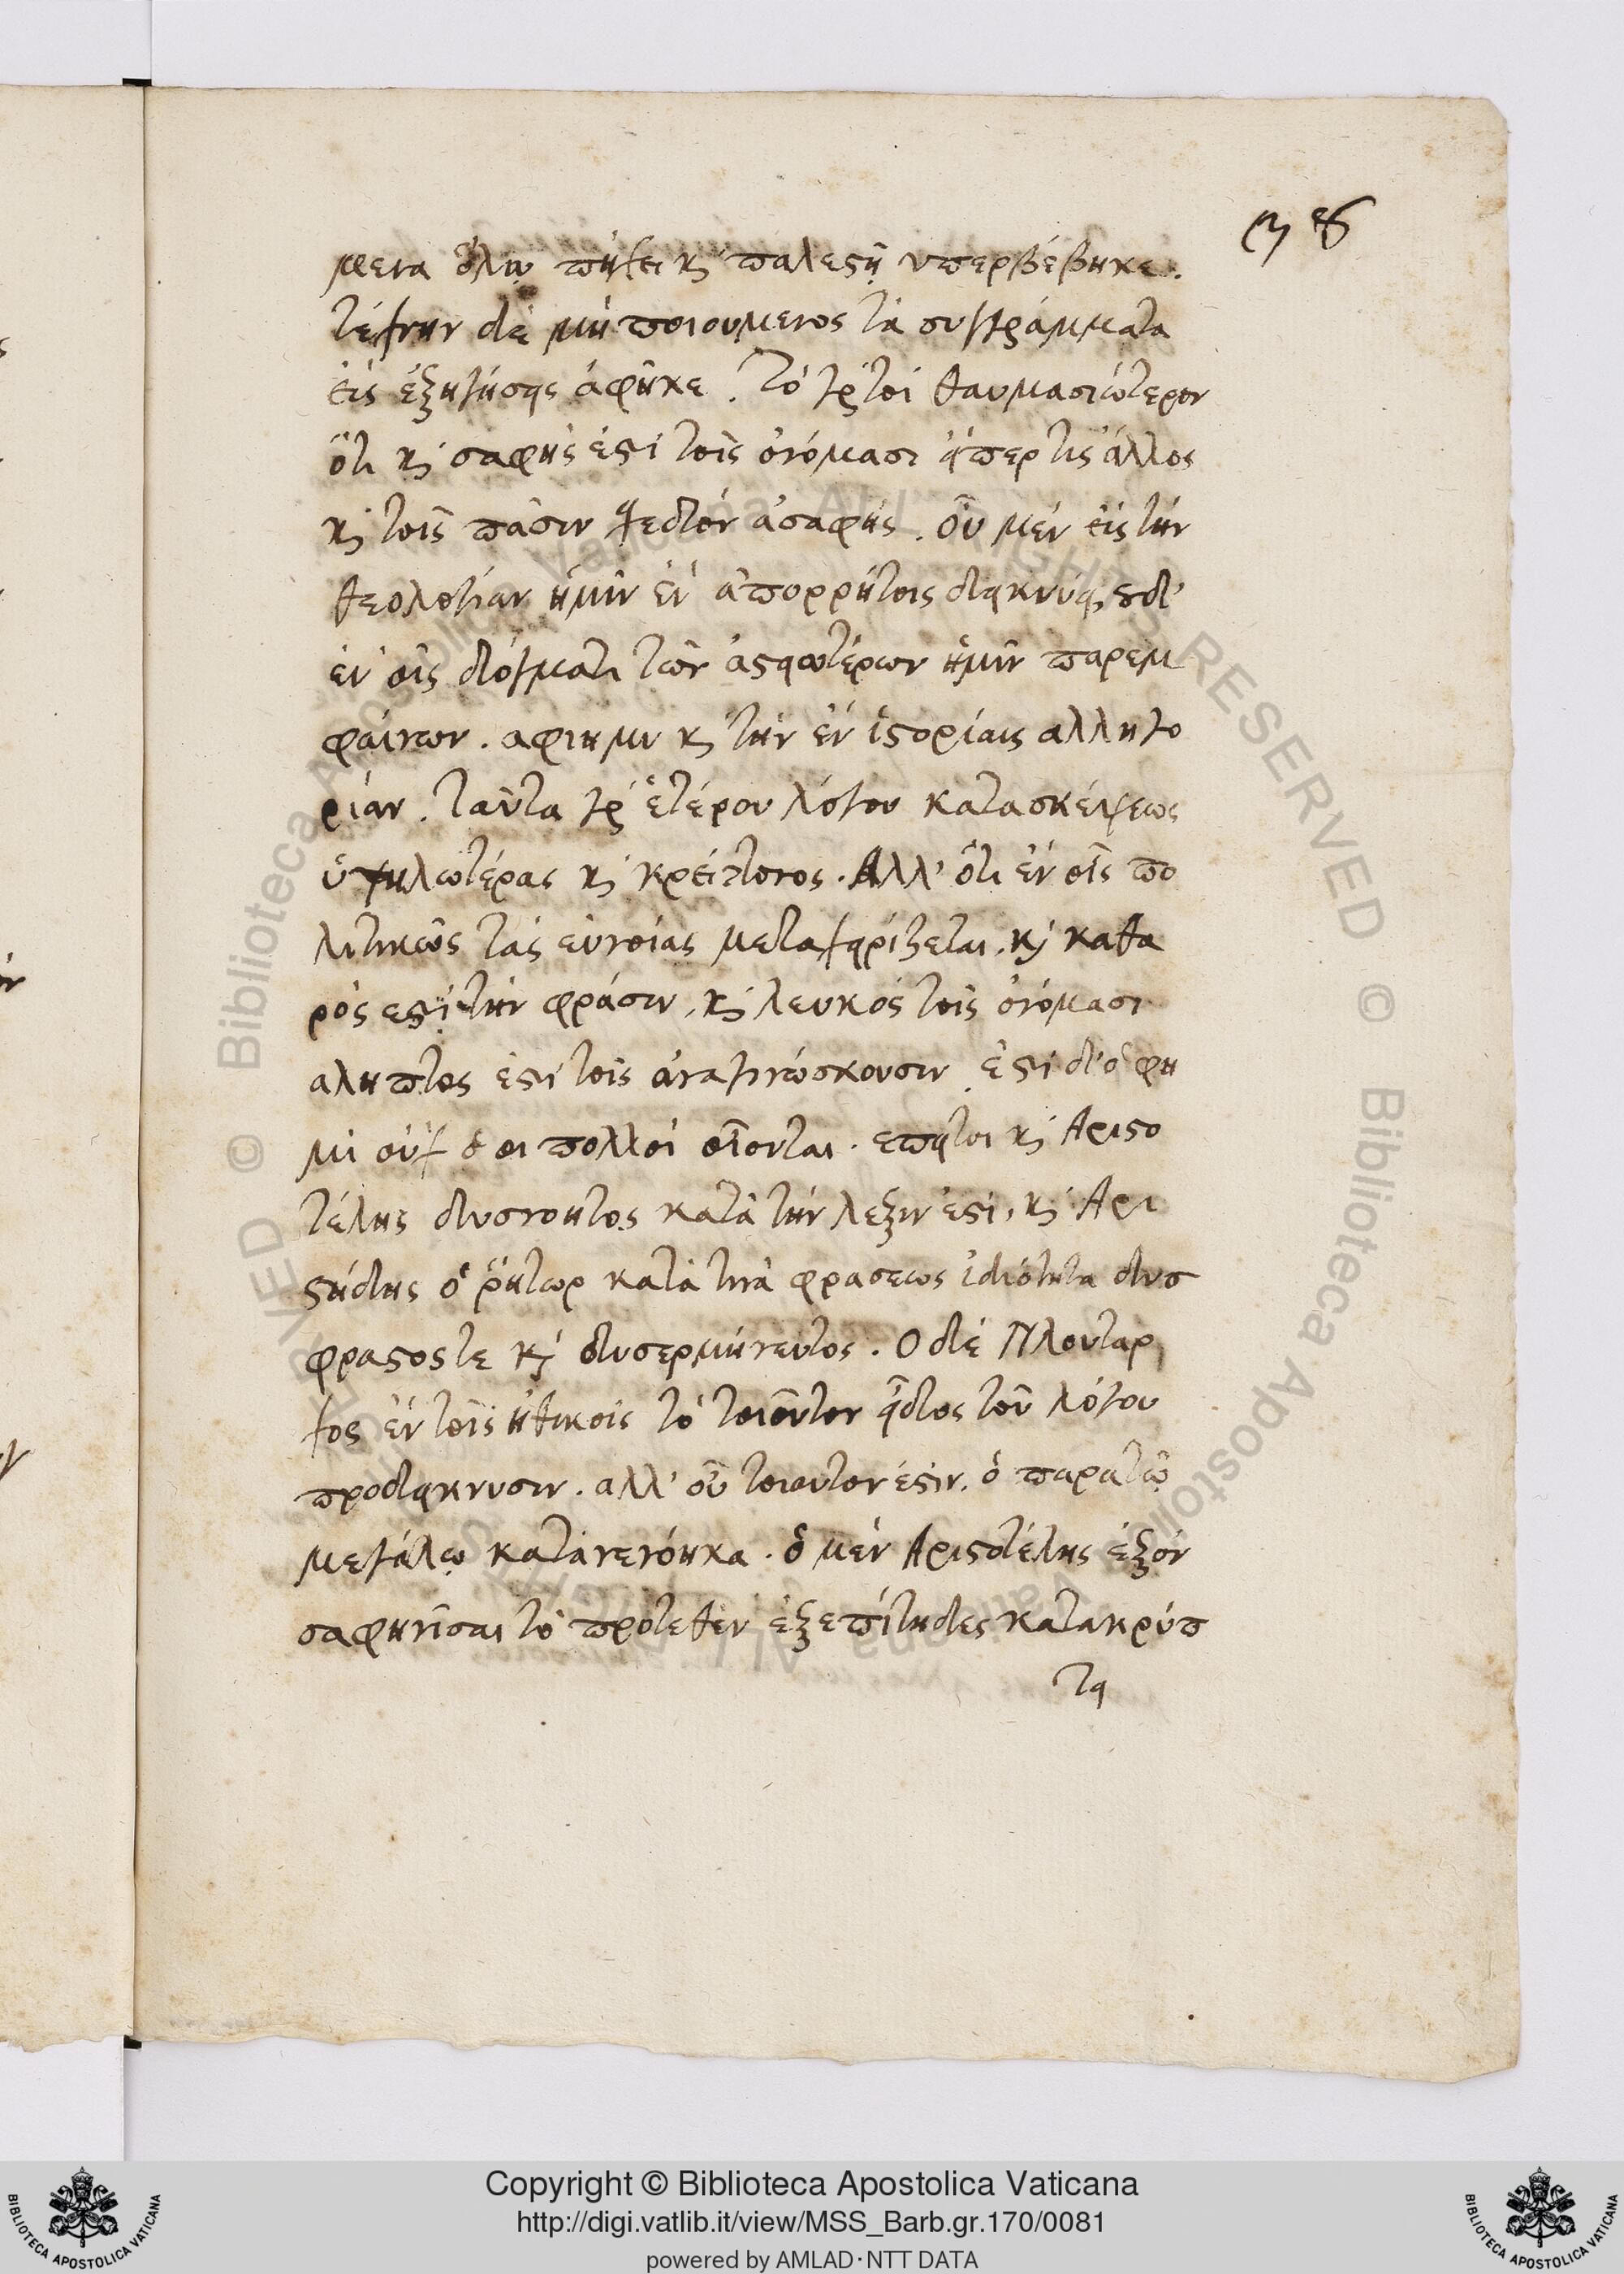 μενα ὅλῳ πήχει καὶ παλεστῇ ὑπερβέβηκε.
τέχνην δὲ μὴ ποιουμενος τὰ συγγράμματα
εἰς ἐξηγήσεις ἀφῆκε. Τὸ γάρτοι θαυμασιώτερον
ὅτι καὶ σαφής ἐστι τοῖς ὀνόμασι εἴπερ τις ἄλλος
καὶ τοῖς πᾶσιν σχεδὸν ἀσαφής. οὐ μὲν εἰς τὴν
θεολογίαν ἡμῖν ἐν ἀπορρήτοις δεικνύει, οὐδ'
ἐν οἷς δόγματι τῶν ἀστειοτέρων ἡμῖν παρεμ
φαίνων. αφιημι καὶ τὴν ἐν ἱστορίαις αλληγο
ρίαν. ταῦτα γὰρ ἑτέρου λόγου κατασκέψεως
ὑψηλωτέρας καὶ κρείττονος. Αλλ' ὅτι ἐν οἷς πο
λιτικῶς τὰς εὐνοίας μεταχειρίζεται, καὶ καθα
ρός εστι τὴν φράσιν, καὶ λευκὸς τοῖς ὀνόμασι
αληπτος ἐστὶ τοῖς ἀναγινώσκουσιν. ἐστὶ δ' ὅ φη
μι οὐχ ὃ οι πολλοὶ οἴονται. επείτοι καὶ Αριστο
τέλης δυσνοητος κατὰ τὴν λεξιν ἐστί, καὶ Αρι
στήδης ὁ ῥήτωρ κατὰ τινὰ φρασεως ἰδιότητα δυσ
φραστος τε καὶ δυσερμήνευτος. Ο δὲ Πλουταρ
χος ἐν τοῖς ἠθικοῖς τὸ τοιοῦτον εἶδος τοῦ λόγου
προδεικνυσιν. αλλ' οὐ τοιουτον ἐστιν. ὁ παρα τῶ
μεγάλῳ κατανενόηκα. ὁ μὲν Αριστοτέλης ἐξὸν
σαφηνῖσαι τὸ πρότεθεν ἐξεπίτηδες κατακρύπ
τει